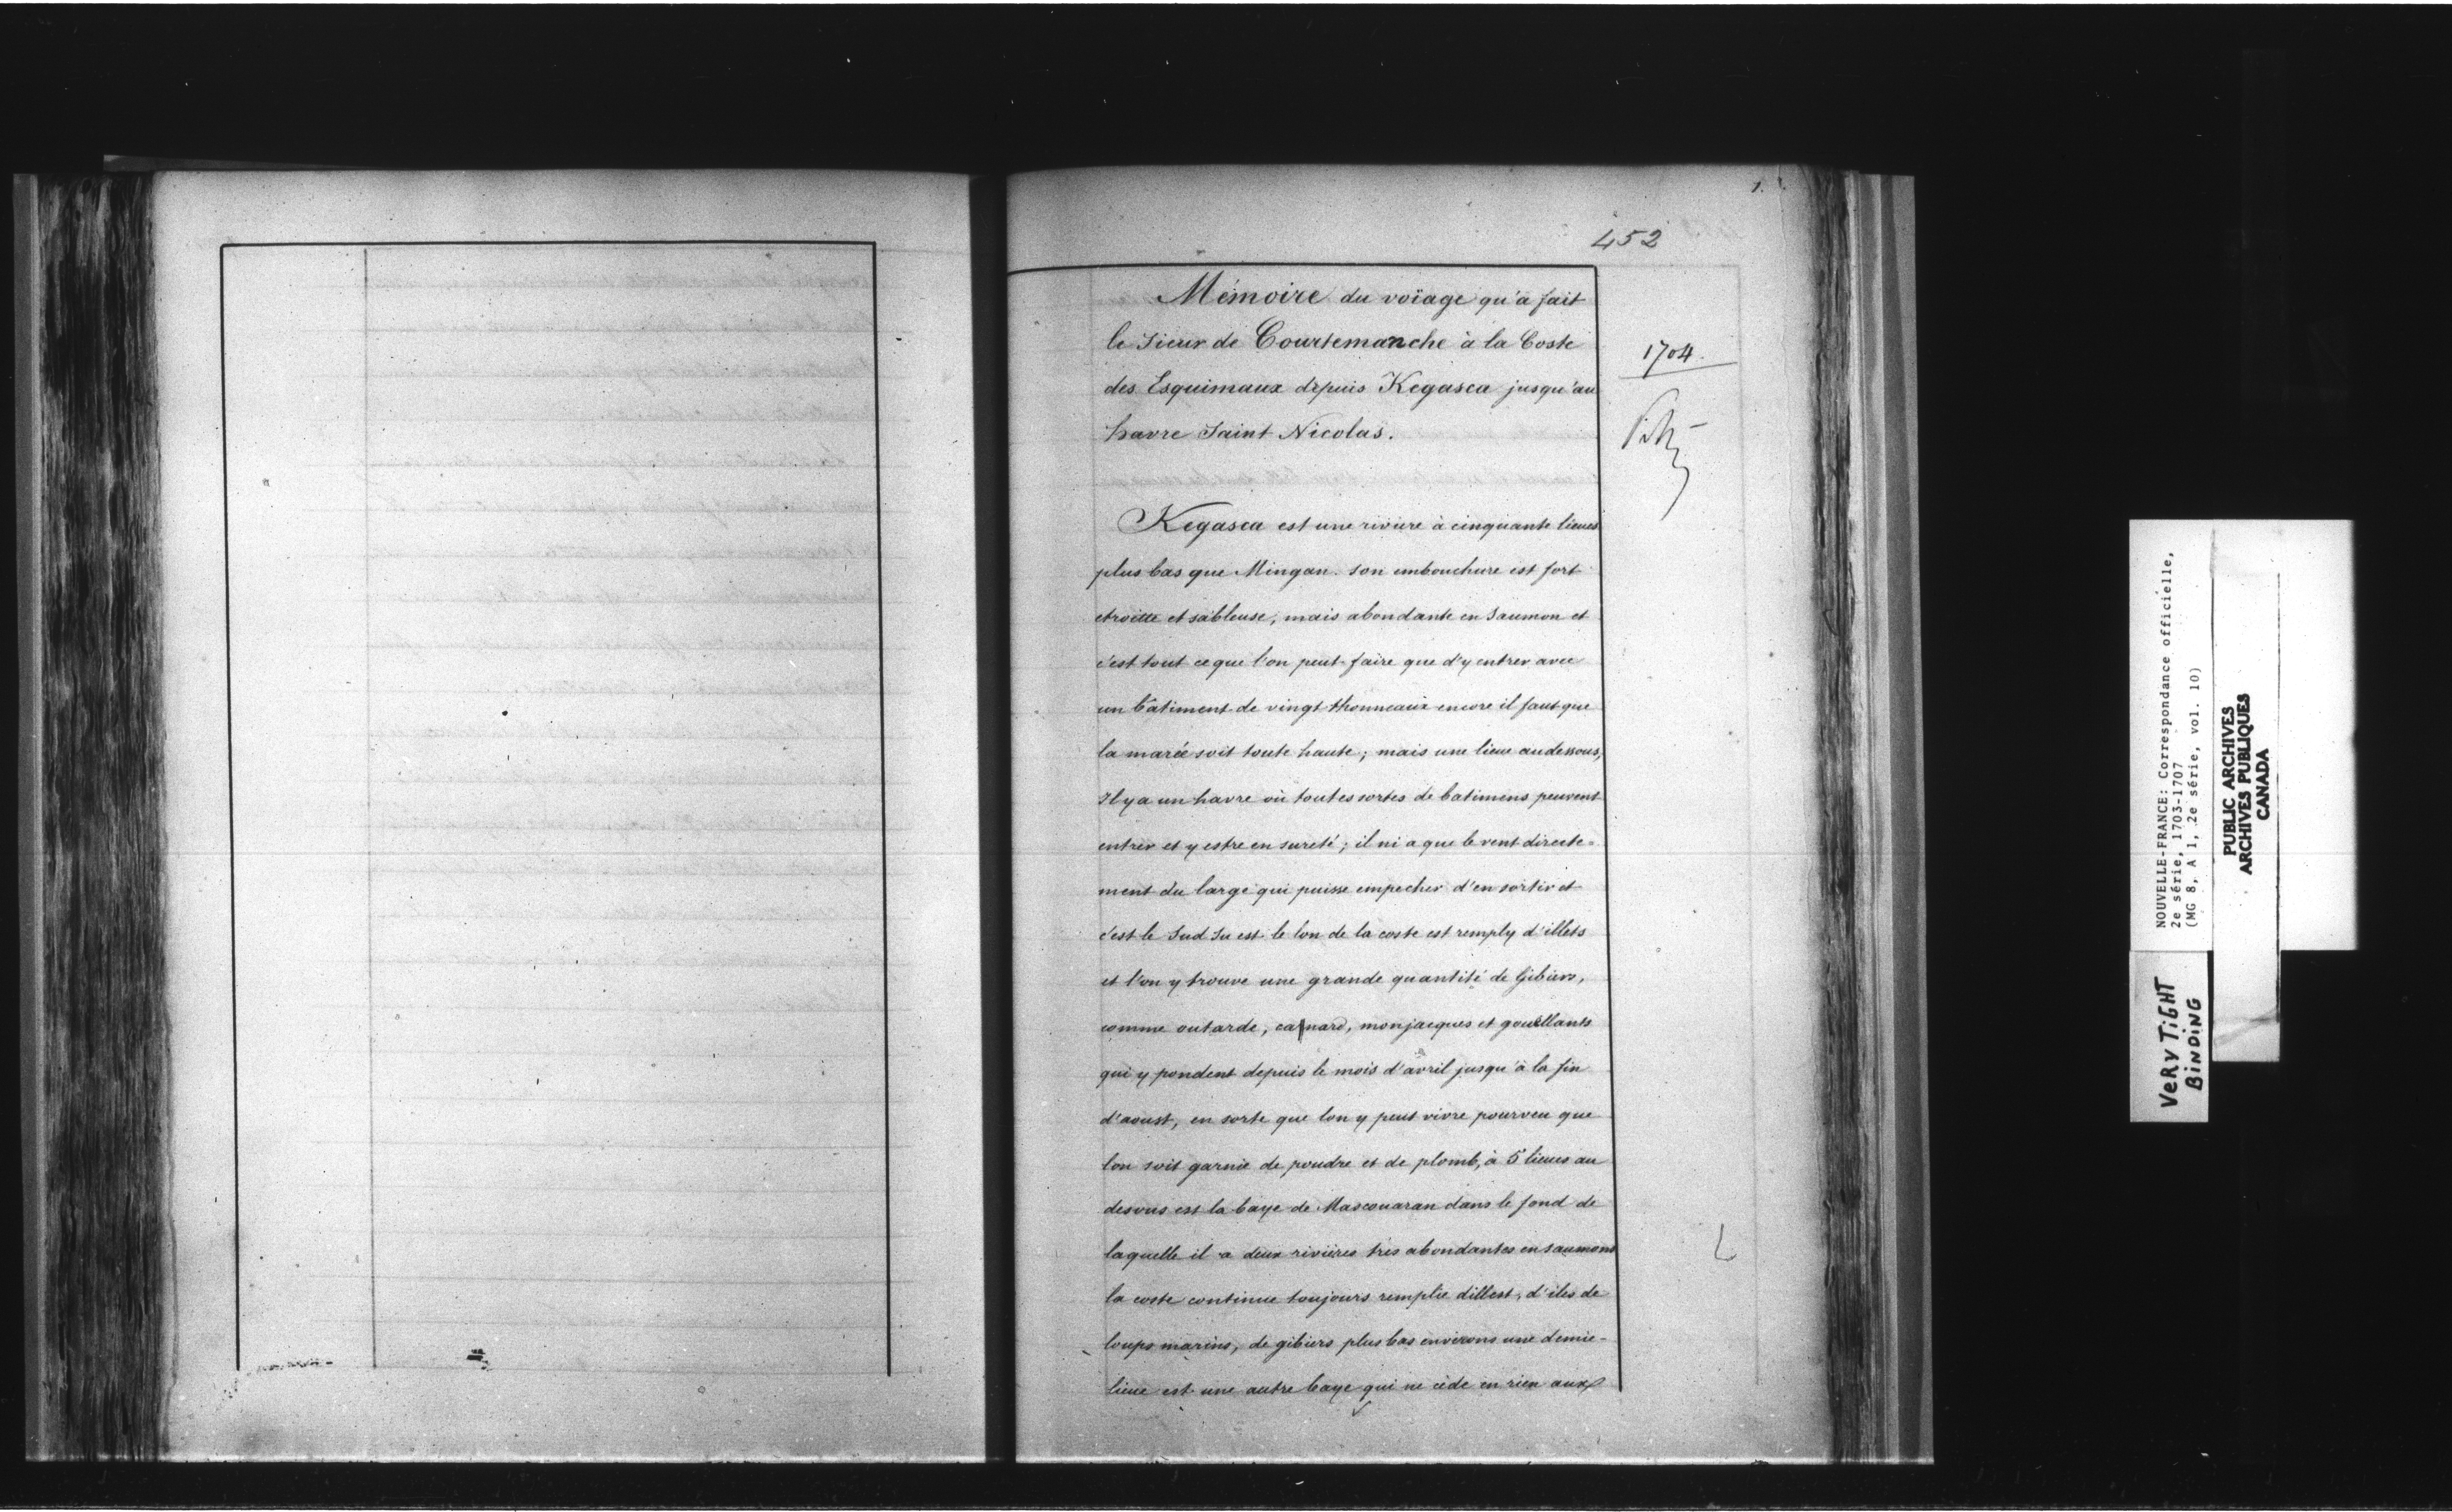 1.
452
Mémoire du voïage qu'a fait
le Sieur de Courtemanche à la Coste
des Esquimaux depuis Kegasca jusqu'au
havre Saint Nicolas.
1704.
Kegasca est une riviere à cinquante lieues
plus bas que Mingan. son embouchure est fort
etroitte et sableuse, mais abondante en Saumon et
c'est tout ce que l'on peut faire que d'y entrer avec
un batiment de vingt thonneaux encore il faut que
la marée soit toute haute; mais une lieue au dessous,
Il y a un havre où toutes sortes de batimens peuvent
entrer et y estre en sureté; il ni a que le vent directe=
ment du large qui puisse empecher d'en sortir et
c'est le Sud Su est le lon de la coste est remply d'illets
et l'on y trouve une grande quantité de Gibiers,
comme outarde, canard, monjacques et gouellants
qui y pondent depuis le mois d'avril jusqu'à la fin
d'aoust, en sorte que lon y peut vivre pourveu que
lon soit garnie de poudre et de plomb, à 5 lieues au
desous est la baye de Mascouaran dans le fond de
laquelle il a deux rivières très abondantes en saumons
la coste continue toujours remplie dillest, d'iles de
loups marins, de gibiers plus bas environs une demie-
lieue est une autre baye qui ne cède en rien aux
NOUVELLE-FRANCE: Correspondance officielle,
2e série, 1703-1707
(MG 8, A 1, 2e série, vol. 10)
PUBLIC ARCHIVES
ARCHIVES PUBLIQUES
CANADA
VERY TIGHT
BINDING